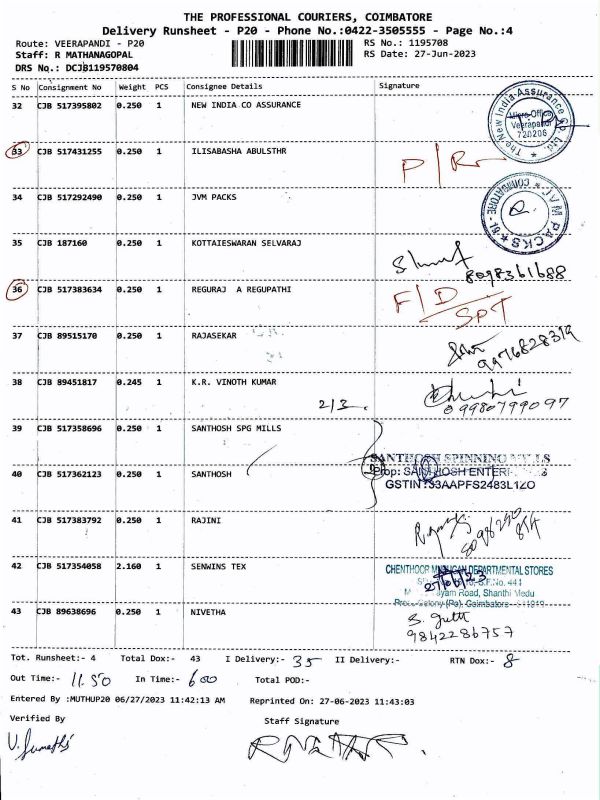 THE PROFESSIONAL COURIERS, COIMBATORE
Delivery Runsheet - P20 - Phone No.:0422-3505555 - Page No.:4
Route: VEERAPANDI - P20 RS No.: 1195708
Staff: R MATHANAGOPAL RS Date: 27-Jun-2023
DRS No.: DCJB119570804
S No Consignment No Weight PCS Consignee Details Signature
32 CJB 517395802 0.250 1 NEW INDIA CO ASSURANCE
The New India Assurance Co Ltd.
Micro Office
Veerapandi
720206
33 CJB 517431255 0.250 1 ILISABASHA ABULSTHR
34 CJB 517292490 0.250 1 JVM PACKS
COIMBATORE - 19
35 CJB 187160 0.250 1 KOTTAIESWARAN SELVARAJ
8098361688
36 CJB 517383634 0.250 1 REGURAJ A REGUPATHI F/D
SPT
37 CJB 89515170 0.250 1 RAJASEKAR
9976828319
38 CJB 89451817 0.245 1 K.R. VINOTH KUMAR
2/3. 09980799097
39 CJB 517358696 0.250 1 SANTHOSH SPG MILLS
SANTHOSH SPINNING MILLS
40 CJB 517362123 0.250 1 SANTHOSH Prop: SANTHOSH
GSTIN:33AAPFS2483L1ZO
41 CJB 517383792 0.250 1 RAJINI
42 CJB 517354058 2.160 1 SENWINS TEX CHENTHOOR MURUGAN DEPARTMENTAL STORES
27/6/23
Road, Shanthi Medu
Colony (Po), Coimbatore
43 CJB 89638696 0.250 1 NIVETHA
9842286757
Tot. Runsheet:- 4 Total Dox:- 43 I Delivery:- 35 II Delivery:- RTN Dox:- 8
Out Time:- 11.50 In Time:- 6.00 Total POD:-
Entered By :MUTHUP20 06/27/2023 11:42:13 AM Reprinted On: 27-06-2023 11:43:03
Verified By Staff Signature
V. Sumathi